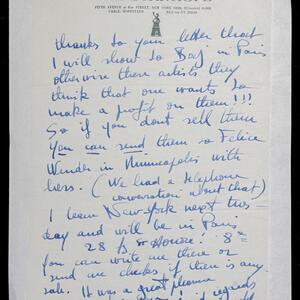 FIFTH AVENUE at 61st STREET, NEW YORK
thanks to your letter that
I will show to Boij in Paris
otherwise these artists they
think that one wants to
make a profit on them!!!
So if you dont sell them
you can send them to Felice
Wender in Minneapolis with
hers. (We had a telephone
conversation about that)
I leave New York next tues
day and will be in Paris
28 St Honoré 8e
you can write me there or
send me checks if there is any
sale. It was a great pleasure
regards